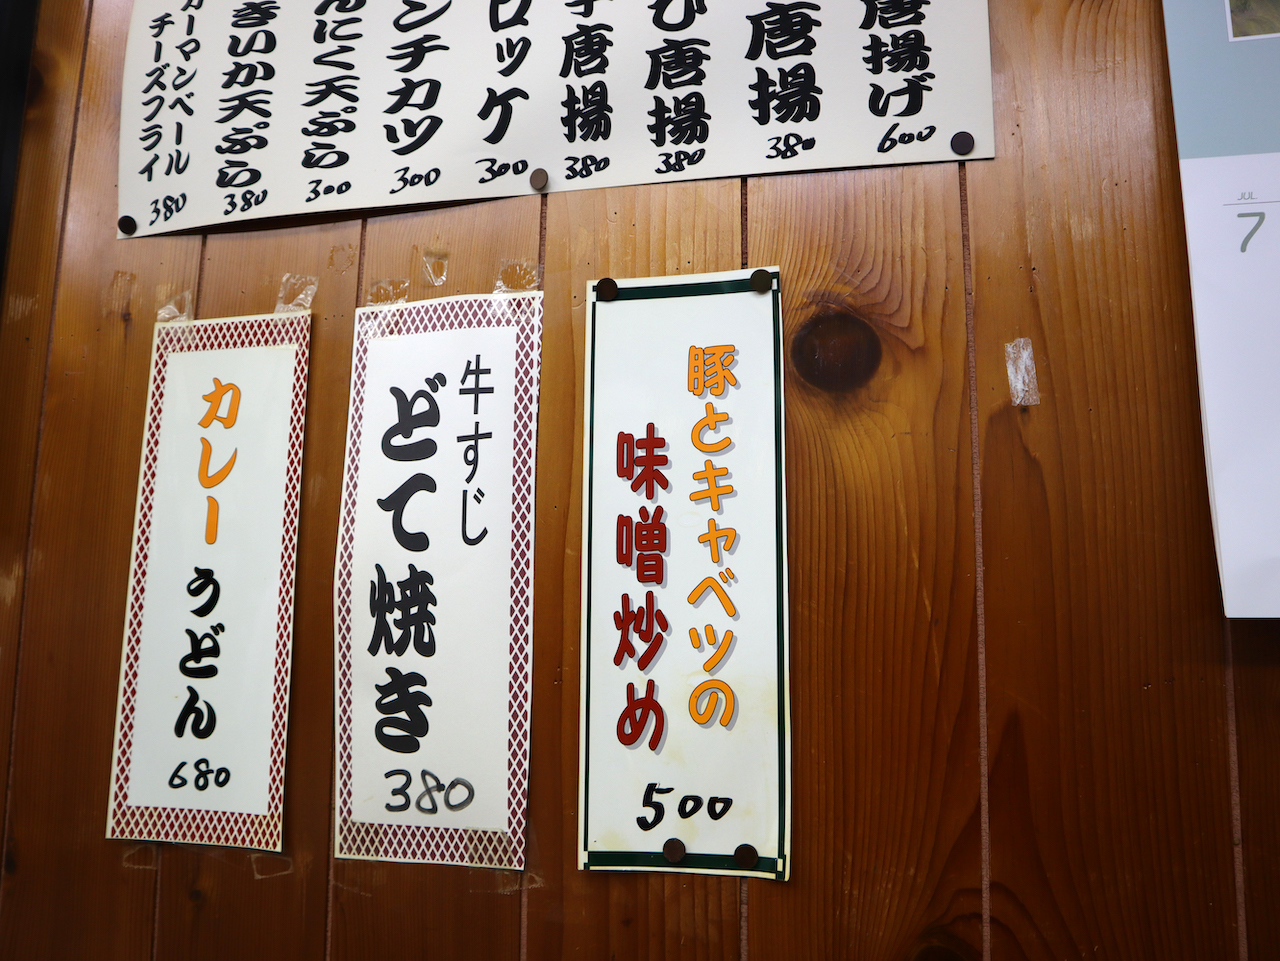 唐揚げ
600
唐揚
380
び唐揚
380
唐揚
380
ロッケ
300
ンチカツ
300
んにく天ぷら
300
きいか天ぷら
380
カーマンベール
チーズフライ
380
豚とキャベツの
味噌炒め
500
牛すじ
どて焼き
380
カレーうどん
680
JUL.
7